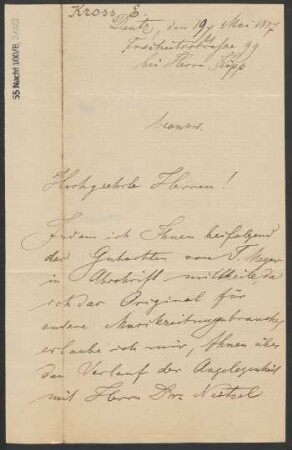 55 Nachl 100/B
Kross, E.
Deutz, den 19 Mai 1877
Freiheitstrasse 99
bei Herrn Küpp
beantw.
Hochgeehrte Herren!
Indem ich Ihnen beifolgend
das Gutachten von F. Meyer
in Abschrift mittheile, da
ich das Original für
andere Musikzeitungen brauche,
erlaube ich mir, Ihnen über
den Verlauf der Angelegenheit
mit Herrn Dr. Neitzel